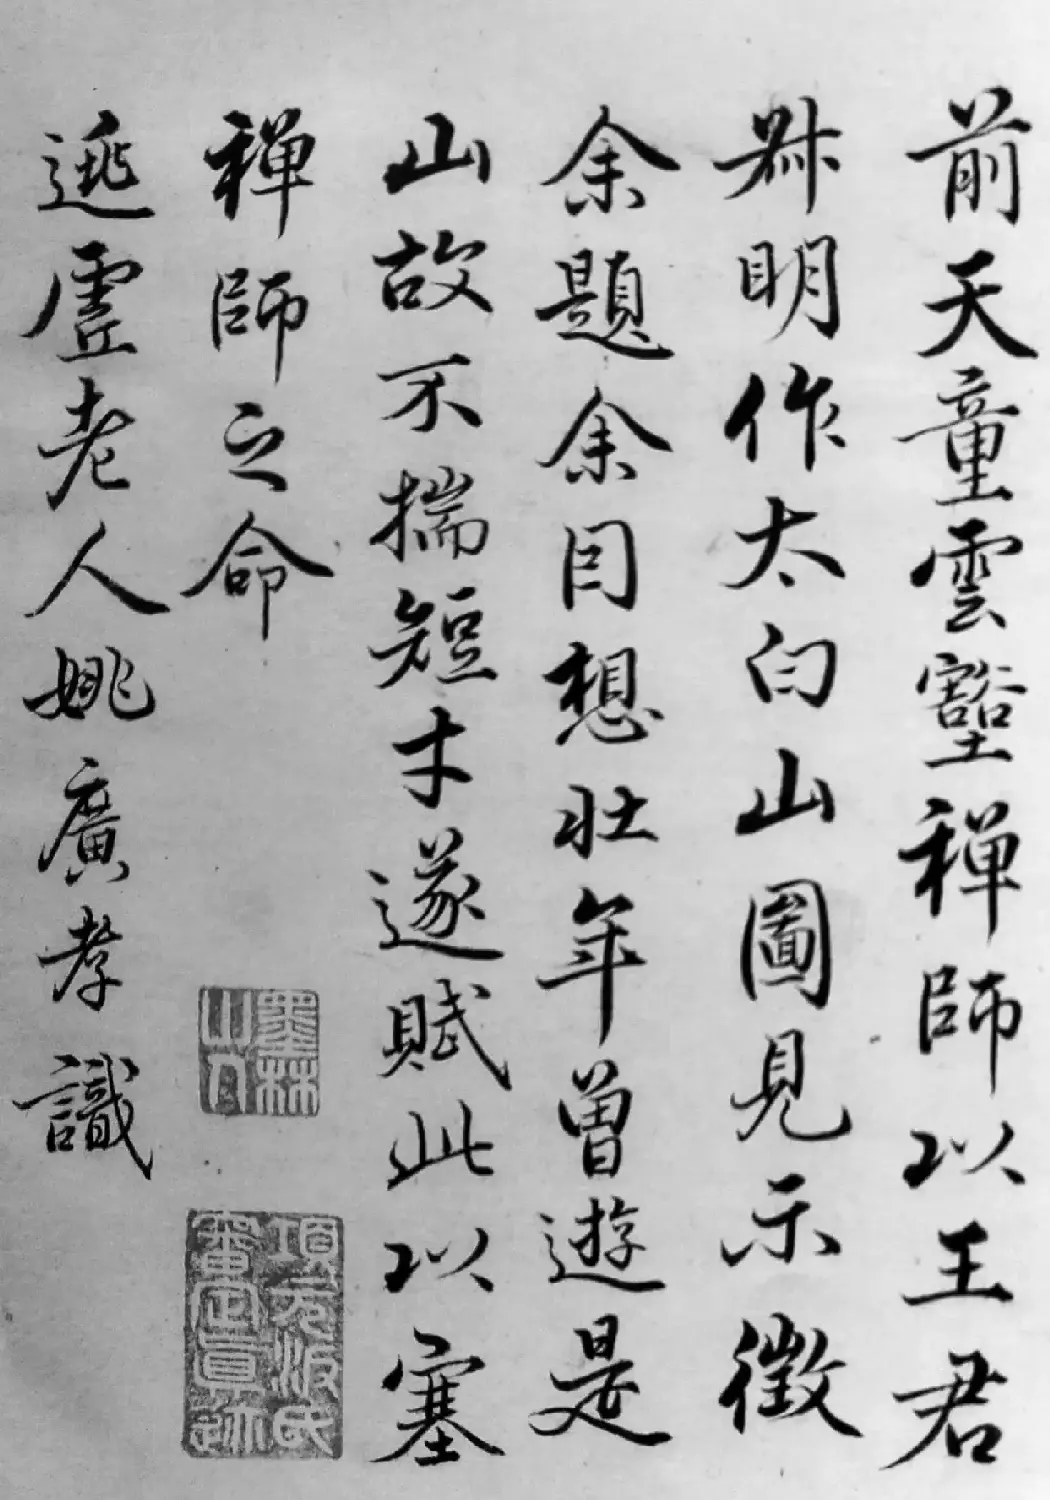 前天童雲壑禅師以王君
叔明作太白山圖見示徵
余題余因想壯年曾遊是
山故不揣短才遂賦此以塞
禅師之命
逃虛老人姚廣孝識
墨林山人
項元汴氏審定真跡